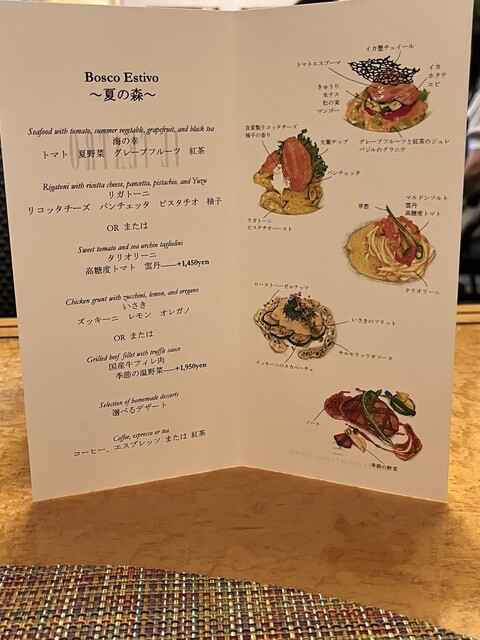 Bosco Estivo
～夏の森～
Seafood with tomato, summer vegetable, grapefruit, and black tea
海の幸
トマト 夏野菜 グレープフルーツ 紅茶
Rigatoni with ricotta cheese, pancetta, pistachio, and Yuzu
リガトーニ
リコッタチーズ パンチェッタ ピスタチオ 柚子
OR または
Sweet tomato and sea urchin tagliolini
タリオリーニ
高糖度トマト 雲丹――+1,450yen
Chicken grunt with zucchini, lemon, and oregano
いさき
ズッキーニ レモン オレガノ
OR または
Grilled beef fillet with truffle sauce
国産牛フィレ肉
季節の温野菜――+1,950yen
Selection of homemade desserts
選べるデザート
Coffee, espresso or tea
コーヒー、エスプレッソ または 紅茶
イカ墨チュイール
トマトエスプーマ
イカ
ホタテ
エビ
きゅうり
水ナス
松の実
マンゴー
グレープフルーツと紅茶のジュレ
バジルのグラニテ
自家製リコッタチーズ
柚子の香り
大葉チップ
パンチェッタ
リガトーニ
ピスタチオペースト
マルドンソルト
雲丹
高糖度トマト
芽葱
タリオリーニ
ローストヘーゼルナッツ
いさきのフリット
サルモリッリオソース
ズッキーニのスカペーチェ
ソース
季節の野菜